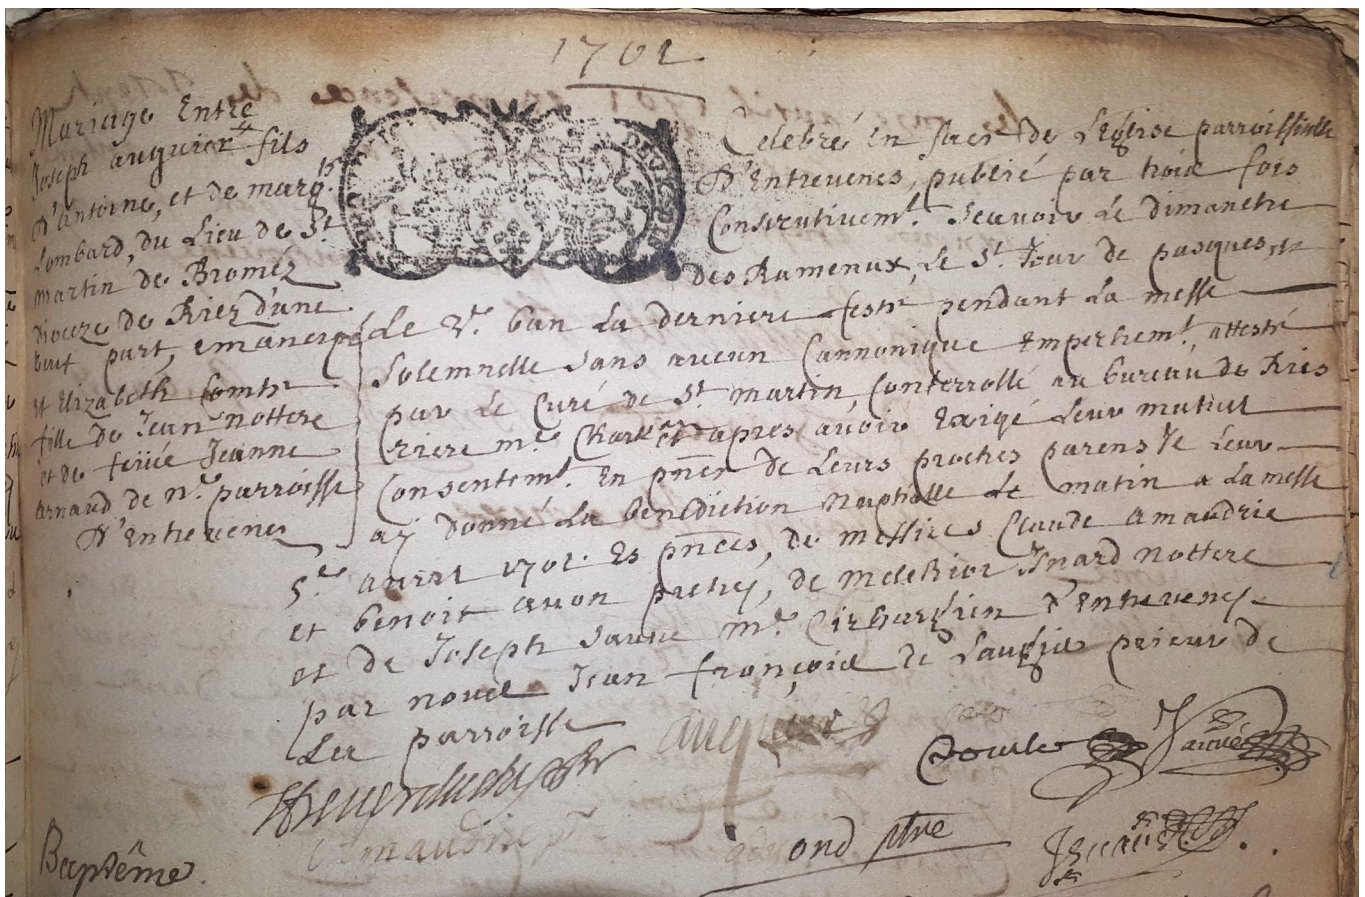 1701
Mariage Entre
Joseph auguier fils
d'antoine, et de marg.te
Lombard, du Lieu de St
martin de Bromez
dioceze de Riez d'une
part, emancipé
et Elizabeth Comte
fille de Jean nottere
et de feüe Jeanne
arnaud de n.re parroisse
d'Entrevenes
Celebré En face de L'Eglise parroissielle
d'Entrevenes, publié par trois fois
Consecutivem.t Scavoir Le dimanche
des Rameaux, Le St Jour de pasques, et
Le 3.e ban La derniere feste pendant La messe
Solemnelle Sans aucun Cannonique Empechem.t, attesté
par Le Curé de St martin, Conterrollé au bureau de Ries
riere m.e et apres avoir Exigé Leur mutuel
Consentem.t En pñce de Leurs proches parens Je Leur
aÿ donné La benediction Nuptialle Le matin a La messe
5.e avril 1701. Es pñces, de messires Claude Amaudric
et benoit avon pretres, de melchior Jnard nottere
et de Joseph Sauve m.e Cirhurgien d'Entrevenes
par nous Jean françois de Laugier prieur de
La parroisse
auguier
Comte
Sauve
Amaudric ptre
ond ptre
Baptême.